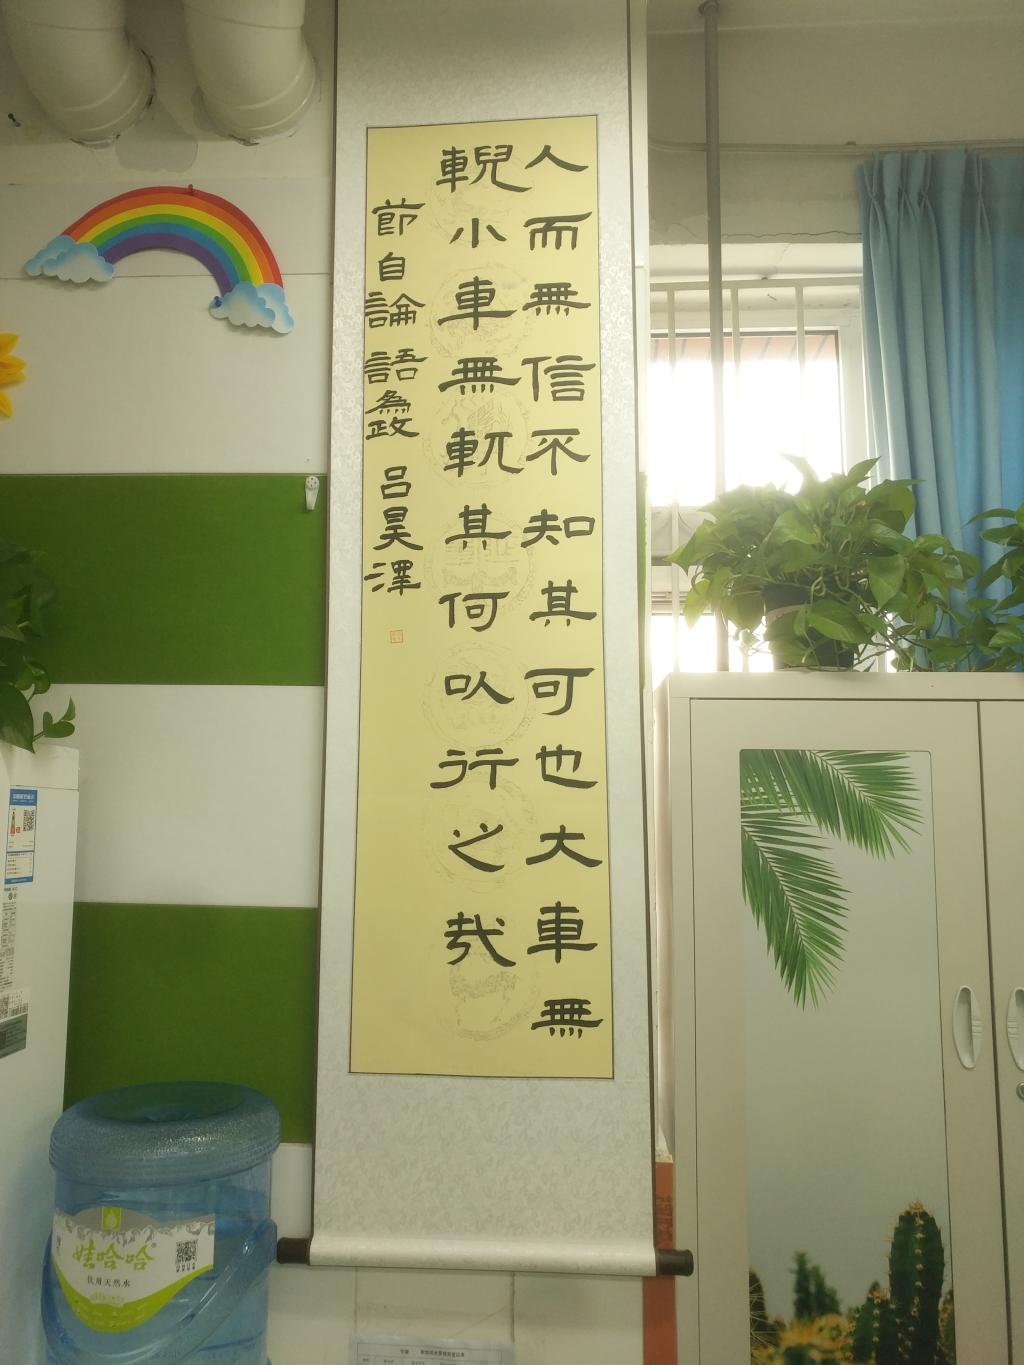 人而無信不知其可也大車無
輗小車無軏其何以行之哉
節自論語為政 吕昊澤
娃哈哈
饮用天然水